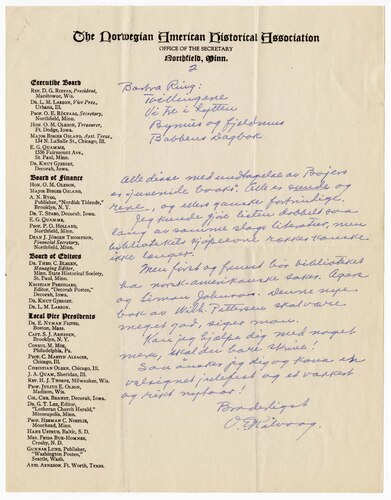 The Norwegian American Historical Association
OFFICE OF THE SECRETARY
Northfield, Minn.
2
Executive Board
REV. D. G. RISTAD, President,
Manitowoc, Wis.
DR. L. M. LARSON, Vice Pres.,
Urbana, Ill.
PROF. O. E. RÖLVAAG, Secretary,
Northfield, Minn.
HON. O. M. OLESON, Treasurer,
Ft. Dodge, Iowa.
MAJOR BIRGER OSLAND, Asst. Treas.,
134 N. LaSalle St., Chicago, Ill.
E. G. QUAMME,
1556 Fairmount Ave.,
St. Paul, Minn.
DR. KNUT GJERSET,
Decorah, Iowa.
Board of Finance
HON. O. M. OLESON.
MAJOR BIRGER OSLAND.
A. N. RYGG,
Publisher, "Nordisk Tidende,"
Brooklyn, N. Y.
DR. T. STABO, Decorah, Iowa.
E. G. QUAMME,
St. Paul, Minn.
PROF. P. O. HOLLAND,
Northfield, Minn.
DEAN J. JÖRGEN THOMPSON,
Financial Secretary,
Northfield, Minn.
Board of Editors
DR. THEO. C. BLEGEN,
Managing Editor,
Minn. State Historical Society,
St. Paul, Minn.
KRISTIAN PRESTGARD,
Editor "Decorah Posten,"
Decorah, Iowa.
DR. KNUT GJERSET.
DR. L. M. LARSON.
Local Vice Presidents
DR. E. NYMAN FIGVED,
Boston, Mass.
CAPT. S. J. ARNESEN,
Brooklyn, N. Y.
CONSUL M. MOE,
Philadelphia, Pa.
PROF. C. MARTIN ALSAGER,
Chicago, Ill.
CHRISTIAN OLSEN, Chicago, Ill.
J. A. QUAM, Sheridan, Ill.
REV. H. J. THORPE, Milwaukee, Wis.
PROF. JULIUS E. OLSON,
Madison, Wis.
COL. CHR. BRANDT, Decorah, Iowa.
DR. G. T. LEE, Editor,
"Lutheran Church Herald,"
Minneapolis, Minn.
PROF. HERMAN C. NORDLIE,
Moorhead, Minn.
HANS USTRUD, Baltic, S. D.
MRS. FRIDA BUE-HOMNES,
Crosby, N. D.
GUNNAR LUND, Publisher,
"Washington Posten,"
Seattle, Wash.
AXEL ARNESON, Ft. Worth, Texas.
Barbra Ring:
Vi tre i hytten
Fjeldmus
Babbens Dagbok
Alle disse med undtagelse av Bojers
er "juvenile books". Alle er sunde og
rene, og ellers ganske fortrinlige.
Jeg kunde gjøre listen dobbelt saa
lang av samme slags literatur, men
bibliotekets kjøpeevne rækker kanske
ikke længer.
Men først og fremst bør biblioteket
ha norsk-amerikanske saker. Agers
og Simon Johnsons. Denne nye
bok av Wilh. Pettersen skal være
meget god, siger man.
Kan jeg hjælpe dig med noget
mere, skal den bare skrive!
Saa ønsker jeg dig og kona en
velsignet julefest og et vakkert
og rikt nytaar!
Broderligst
O. E. Rölvaag